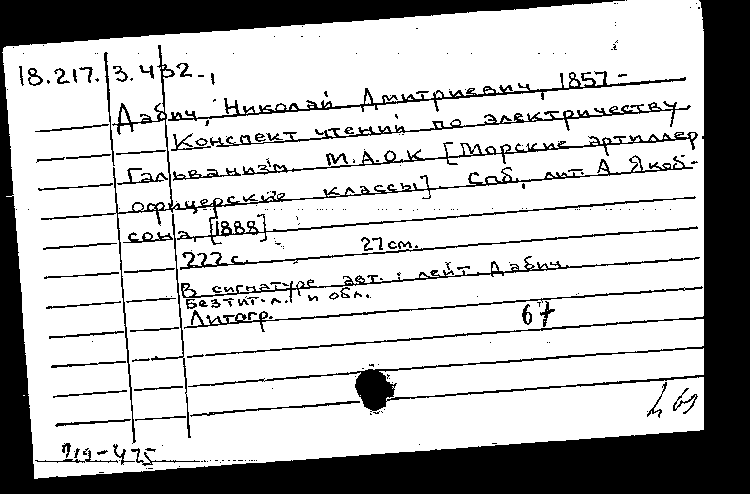 18.217.3.432.,
Дабич, Николай Дмитриевич, 1857-
Конспект чтений по электричеству
Гальванизм. М.А.О.К [Морские артиллер.
офицерские классы]. Спб., лит. А Якоб-
сона, [1888]
222 с. 27 см.
В сигнатуре авт.: лейт. Дабич.
Без тит. л. и обл.
Литогр.
67
69
219-475